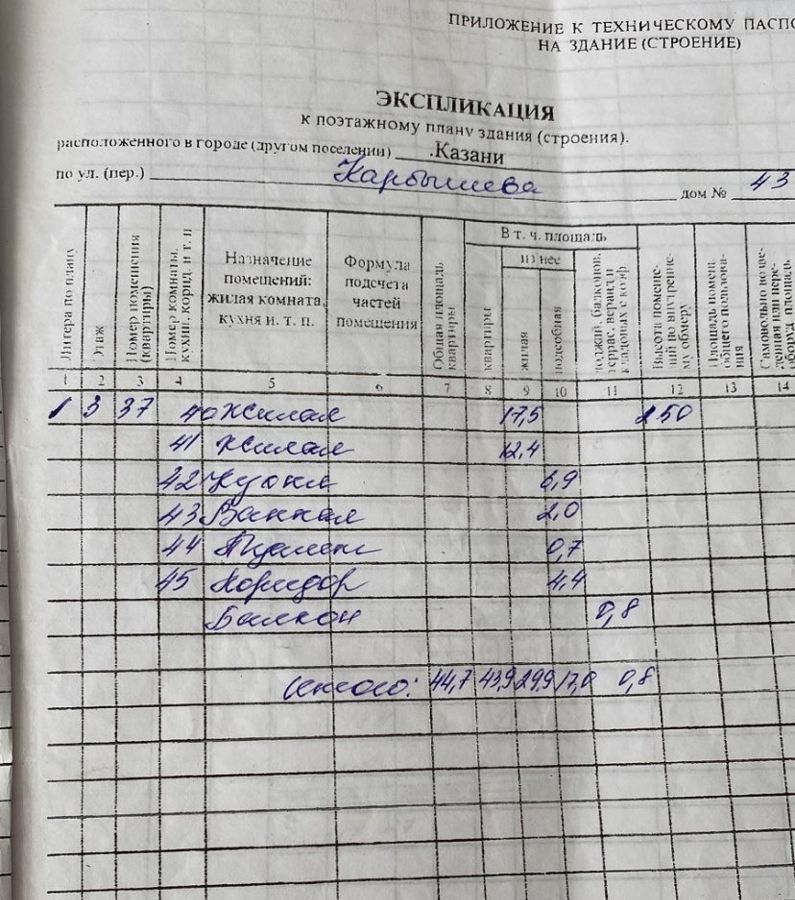 ПРИЛОЖЕНИЕ К ТЕХНИЧЕСКОМУ ПАСПО
НА ЗДАНИЕ (СТРОЕНИЕ)
ЭКСПЛИКАЦИЯ
к поэтажному плану здания (строения).
расположенного в городе (другом поселении) .Казани
по ул. (пер.) Карбышева дом № 43
Литера по плану Этаж Номер помещения (квартиры) Номер комнаты, кухни, корид. и т. п Назначение помещений: жилая комната, кухня и. т. п. Формула подсчета частей помещения Общая площадь квартиры В т. ч. площадь квартиры из нее жилая подсобная лоджий, балконов, террас, веранд и кладовых с коэф. Высота помещений по внутреннему обмеру Площадь помещ. общего пользования Самовольно возведенная или переоборуд. площадь
1 2 3 4 5 6 7 8 9 10 11 12 13 14
1 3 37 40 Жилая 17,5 250
41 Жилая 12,4
42 Кухня 6,9
43 Ванная 2,0
44 Туалет 0,7
45 Коридор 4,4
Балкон 0,8
Итого: 44,7 43,9 29,9 17,0 0,8